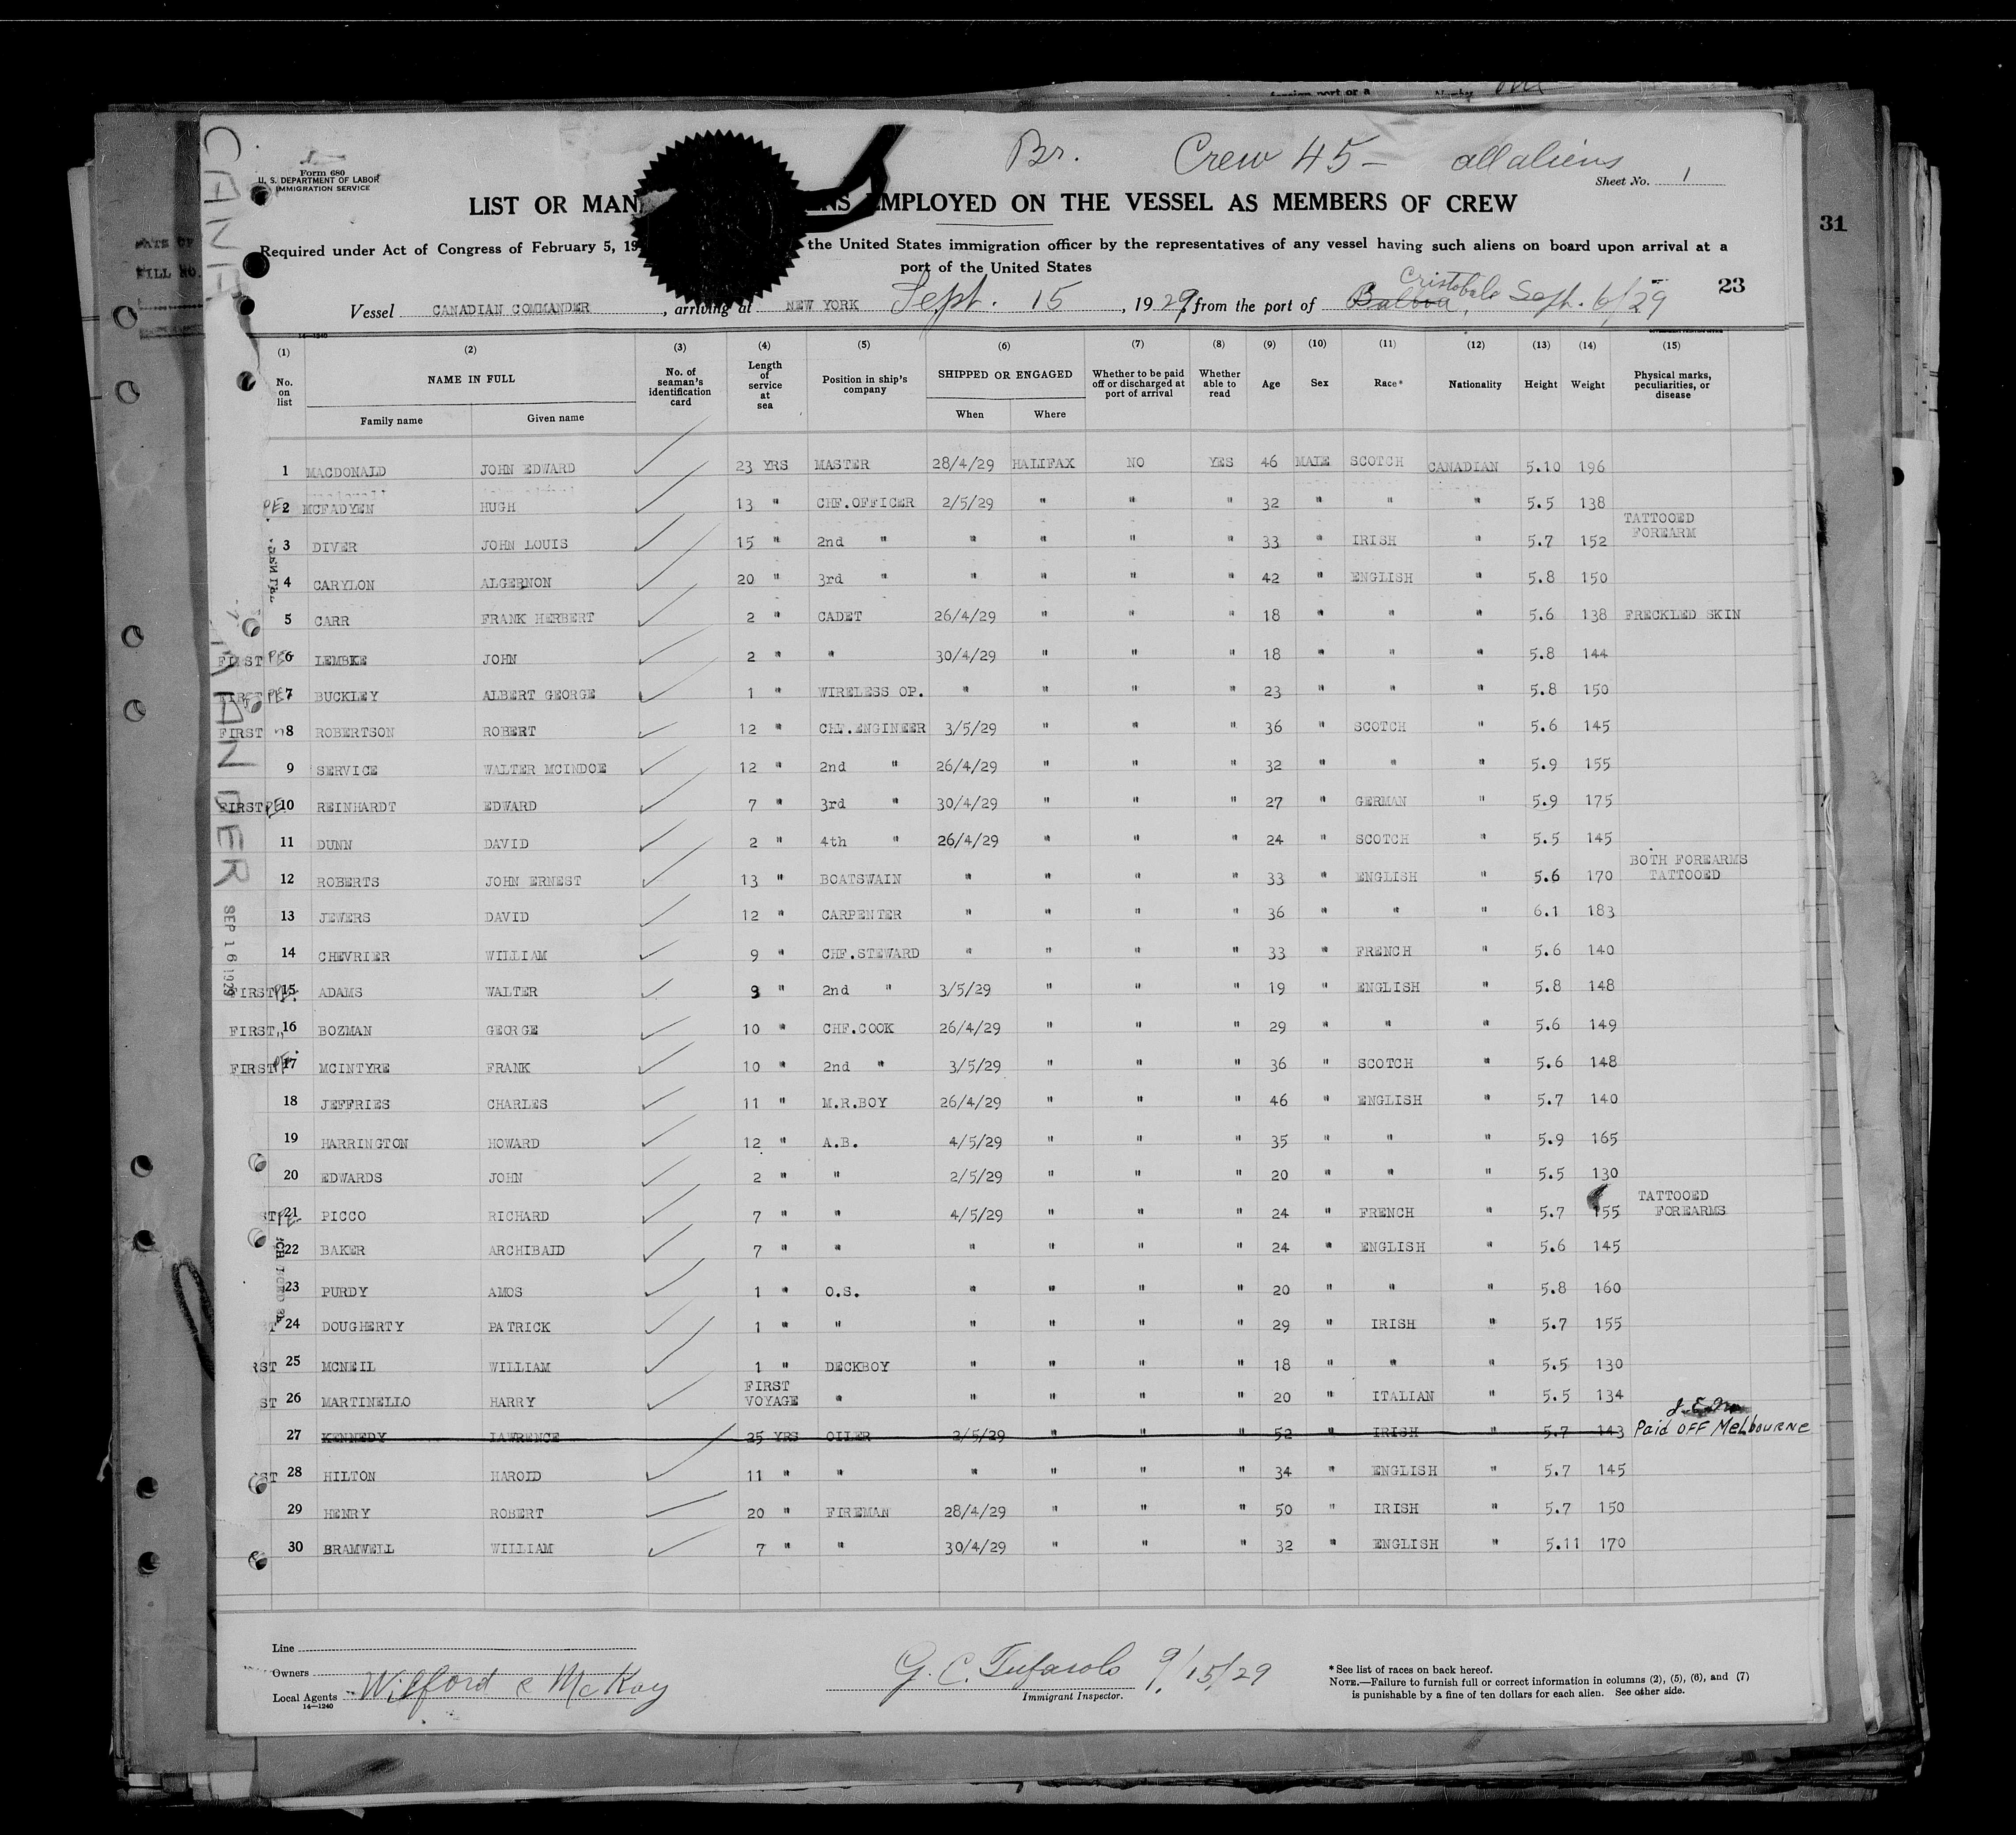 foreign port or a Number one
Br. Crew 45 — all aliens
Form 680
U. S. DEPARTMENT OF LABOR
IMMIGRATION SERVICE
Sheet No. 1
LIST OR MAN ENS EMPLOYED ON THE VESSEL AS MEMBERS OF CREW
31
Required under Act of Congress of February 5, 19 the United States immigration officer by the representatives of any vessel having such aliens on board upon arrival at a
port of the United States
23
Vessel CANADIAN COMMANDER, arriving at NEW YORK Sept. 15, 1929, from the port of Balboa, Cristobal Sept. 6/29
14—1240
(1) (2) (3) (4) (5) (6) (7) (8) (9) (10) (11) (12) (13) (14) (15)
No. on list NAME IN FULL Family name Given name No. of seaman's identification card Length of service at sea Position in ship's company SHIPPED OR ENGAGED When Where Whether to be paid off or discharged at port of arrival Whether able to read Age Sex Race* Nationality Height Weight Physical marks, peculiarities, or disease
1 MACDONALD JOHN EDWARD 23 YRS MASTER 28/4/29 HALIFAX NO YES 46 MALE SCOTCH CANADIAN 5.10 196
PE 2 MCFADYEN HUGH 13 " CHF.OFFICER 2/5/29 " " " 32 " " " 5.5 138
3 DIVER JOHN LOUIS 15 " 2nd " " " " " 33 " IRISH " 5.7 152 TATTOOED FOREARM
4 CARYLON ALGERNON 20 " 3rd " " " " " 42 " ENGLISH " 5.8 150
5 CARR FRANK HERBERT 2 " CADET 26/4/29 " " " 18 " " " 5.6 138 FRECKLED SKIN
FIRST PE 6 LEMBKE JOHN 2 " " 30/4/29 " " " 18 " " " 5.8 144
FIRST PE 7 BUCKLEY ALBERT GEORGE 1 " WIRELESS OP. " " " " 23 " " " 5.8 150
FIRST " 8 ROBERTSON ROBERT 12 " CHF.ENGINEER 3/5/29 " " " 36 " SCOTCH " 5.6 145
9 SERVICE WALTER MCINDOE 12 " 2nd " 26/4/29 " " " 32 " " " 5.9 155
FIRST PE 10 REINHARDT EDWARD 7 " 3rd " 30/4/29 " " " 27 " GERMAN " 5.9 175
11 DUNN DAVID 2 " 4th " 26/4/29 " " " 24 " SCOTCH " 5.5 145
12 ROBERTS JOHN ERNEST 13 " BOATSWAIN " " " " 33 " ENGLISH " 5.6 170 BOTH FOREARMS TATTOOED
13 JEWERS DAVID 12 " CARPENTER " " " " 36 " " " 6.1 183
14 CHEVRIER WILLIAM 9 " CHF.STEWARD " " " " 33 " FRENCH " 5.6 140
FIRST PE. 15 ADAMS WALTER 3 " 2nd " 3/5/29 " " " 19 " ENGLISH " 5.8 148
FIRST " 16 BOZMAN GEORGE 10 " CHF.COOK 26/4/29 " " " 29 " " " 5.6 149
FIRST PE. 17 MCINTYRE FRANK 10 " 2nd " 3/5/29 " " " 36 " SCOTCH " 5.6 148
18 JEFFRIES CHARLES 11 " M.R.BOY 26/4/29 " " " 46 " ENGLISH " 5.7 140
19 HARRINGTON HOWARD 12 " A.B. 4/5/29 " " " 35 " " " 5.9 165
20 EDWARDS JOHN 2 " " 2/5/29 " " " 20 " " " 5.5 130
ST PE 21 PICCO RICHARD 7 " " 4/5/29 " " " 24 " FRENCH " 5.7 155 TATTOOED FOREARMS
22 BAKER ARCHIBALD 7 " " " " " " 24 " ENGLISH " 5.6 145
23 PURDY AMOS 1 " O.S. " " " " 20 " " " 5.8 160
ST 24 DOUGHERTY PATRICK 1 " " " " " " 29 " IRISH " 5.7 155
RST 25 MCNEIL WILLIAM 1 " DECKBOY " " " " 18 " " " 5.5 130
ST 26 MARTINELLO HARRY FIRST VOYAGE " " " " " 20 " ITALIAN " 5.5 134
27 KENNEDY LAWRENCE 25 YRS OILER 2/5/29 " " " 52 " IRISH " 5.7 143 J.E.M. Paid OFF MELBOURNE
ST 28 HILTON HAROLD 11 " " " " " " 34 " ENGLISH " 5.7 145
29 HENRY ROBERT 20 " FIREMAN 28/4/29 " " " 50 " IRISH " 5.7 150
30 BRAMWELL WILLIAM 7 " " 30/4/29 " " " 32 " ENGLISH " 5.11 170
SEP 16 1929
Line
Owners
Local Agents Wilford & McKay
14—1240
G. C. Tufarolo 9/15/29
Immigrant Inspector.
* See list of races on back hereof.
NOTE.—Failure to furnish full or correct information in columns (2), (5), (6), and (7)
is punishable by a fine of ten dollars for each alien. See other side.